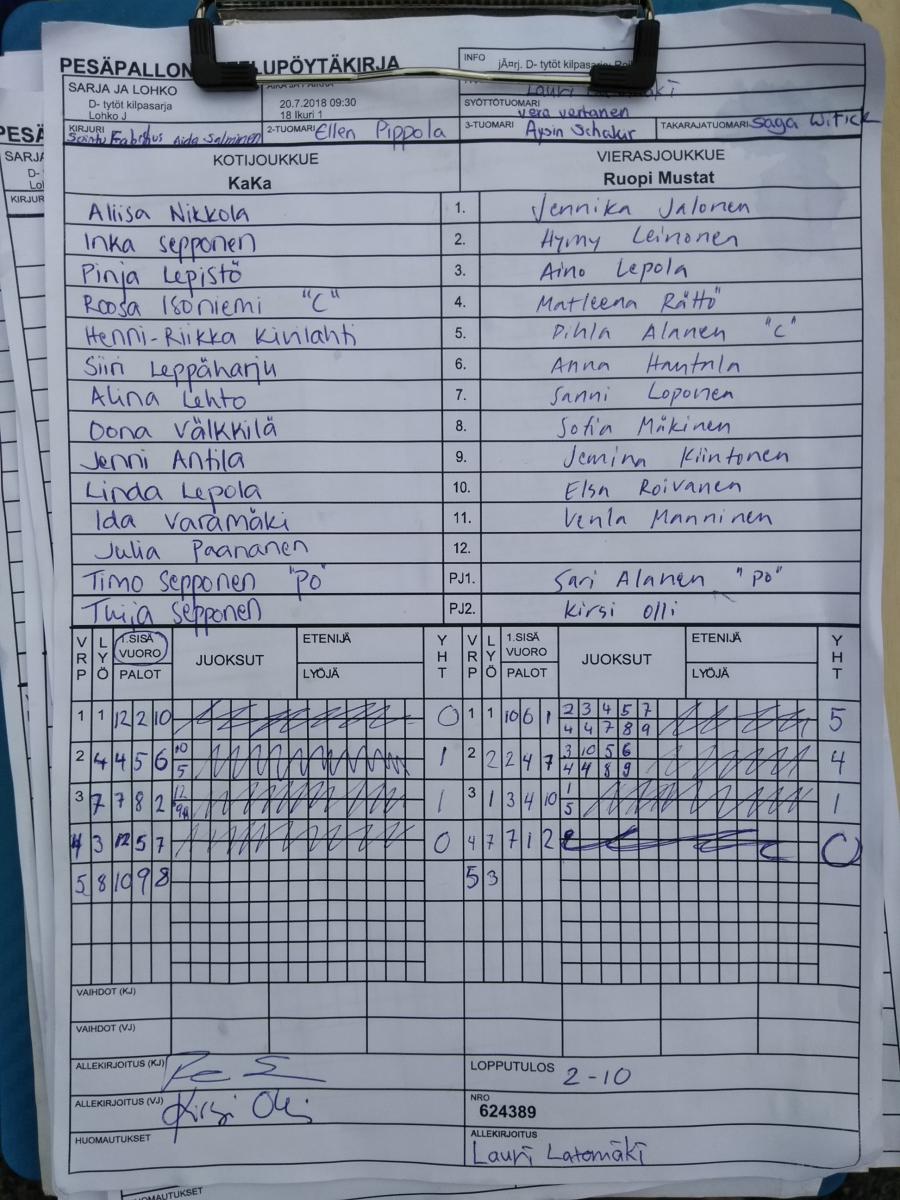 PESÄPALLON LUPÖYTÄKIRJA
INFO
jÄ¤rj. D- tytöt kilpasarja
SARJA JA LOHKO
D- tytöt kilpasarja
Lohko J
20.7.2018 09:30
18 Ikuri 1
SYÖTTÖTUOMARI
Vera Vertanen
KIRJURI Aida Salminen
2-TUOMARI Ellen Pippola
3-TUOMARI
TAKARAJATUOMARI Saga
KOTIJOUKKUE
VIERASJOUKKUE
KaKa
Ruopi Mustat
Aliisa Nikkola 1. Jennika Jalonen
Inka Sepponen 2. Hymy Leinonen
Pinja Lepistö 3. Aino Lepola
Roosa Isoniemi "C" 4. Matleena Rättö
Henni-Riikka Kivilahti 5. Pihla Alanen "C"
Siiri Leppäharju 6. Anna Hautala
Alina Lehto 7. Sanni Loponen
Oona Välkkilä 8. Sofia Mäkinen
Jenni Antila 9. Jemina Kiintonen
Linda Lepola 10. Elsa Roivanen
Ida Varamäki 11. Venla Manninen
Julia Paananen 12.
Timo Sepponen "PO" PJ1. Sari Alanen "PO"
Tuija Sepponen PJ2. Kirsi Olli
VRP LYÖ 1.SISÄ VUORO PALOT JUOKSUT ETENIJÄ LYÖJÄ YHT VRP LYÖ 1.SISÄ VUORO PALOT JUOKSUT ETENIJÄ LYÖJÄ YHT
1 1 12 2 10 0 1 1 10 6 1 2 3 4 5 7 5
4 4 7 8 9
2 4 4 5 6 10 1 2 2 2 4 7 3 10 5 6 4
5 4 4 8 9
3 7 7 8 2 12 1 3 1 3 4 10 1 1
5
4 3 12 5 7 0 4 7 7 1 2 0
5 8 10 9 8 5 3
VAIHDOT (KJ)
VAIHDOT (VJ)
ALLEKIRJOITUS (KJ)
LOPPUTULOS 2-10
ALLEKIRJOITUS (VJ) Kirsi Olli
NRO
624389
HUOMAUTUKSET
ALLEKIRJOITUS
Lauri Latomäki